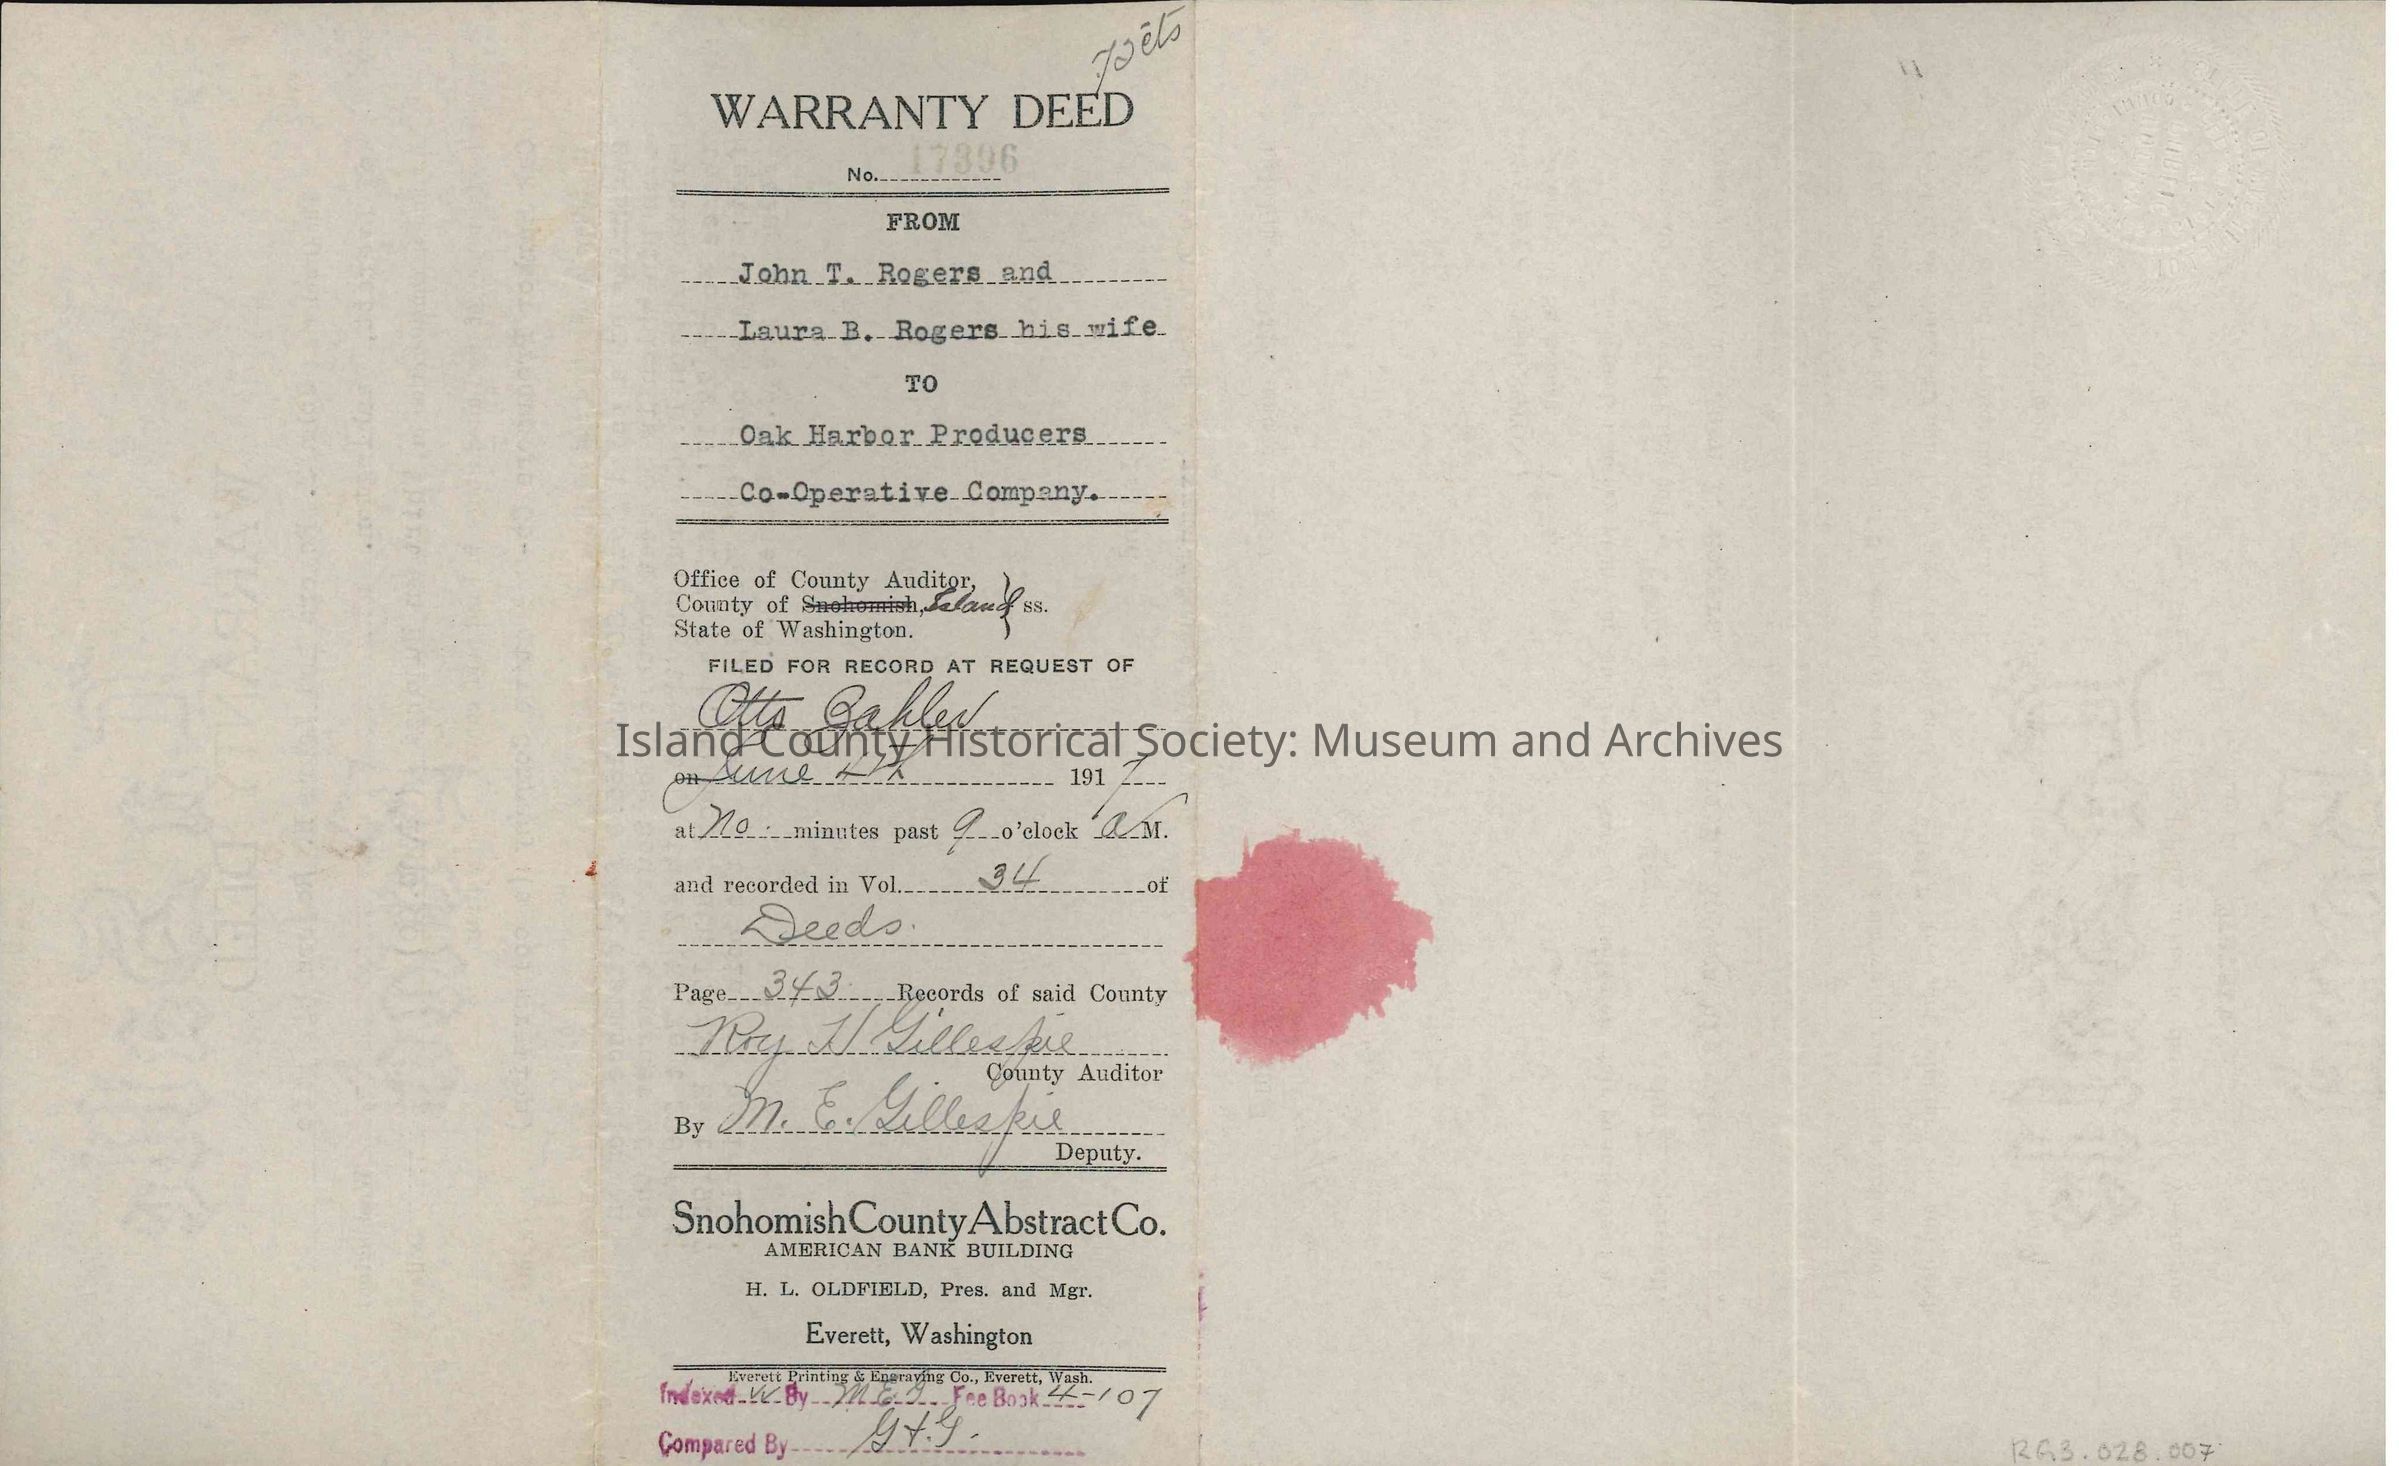 75 cts
WARRANTY DEED
No. 17396
FROM
John T. Rogers and
Laura B. Rogers his wife
TO
Oak Harbor Producers
Co-Operative Company.
Office of County Auditor,
County of Snohomish, Island } ss.
State of Washington.
FILED FOR RECORD AT REQUEST OF
Otto
Island County Historical Society: Museum and Archives
on June 4th 1917
at No minutes past 9 o'clock A M.
and recorded in Vol. 34 of
Deeds.
Page 343 Records of said County
Roy H Gillespie
County Auditor
By M. E. Gillespie
Deputy.
Snohomish County Abstract Co.
AMERICAN BANK BUILDING
H. L. OLDFIELD, Pres. and Mgr.
Everett, Washington
Everett Printing & Engraving Co., Everett, Wash.
Indexed By M E G Fee Book 4-107
Compared By
RG3.028.007